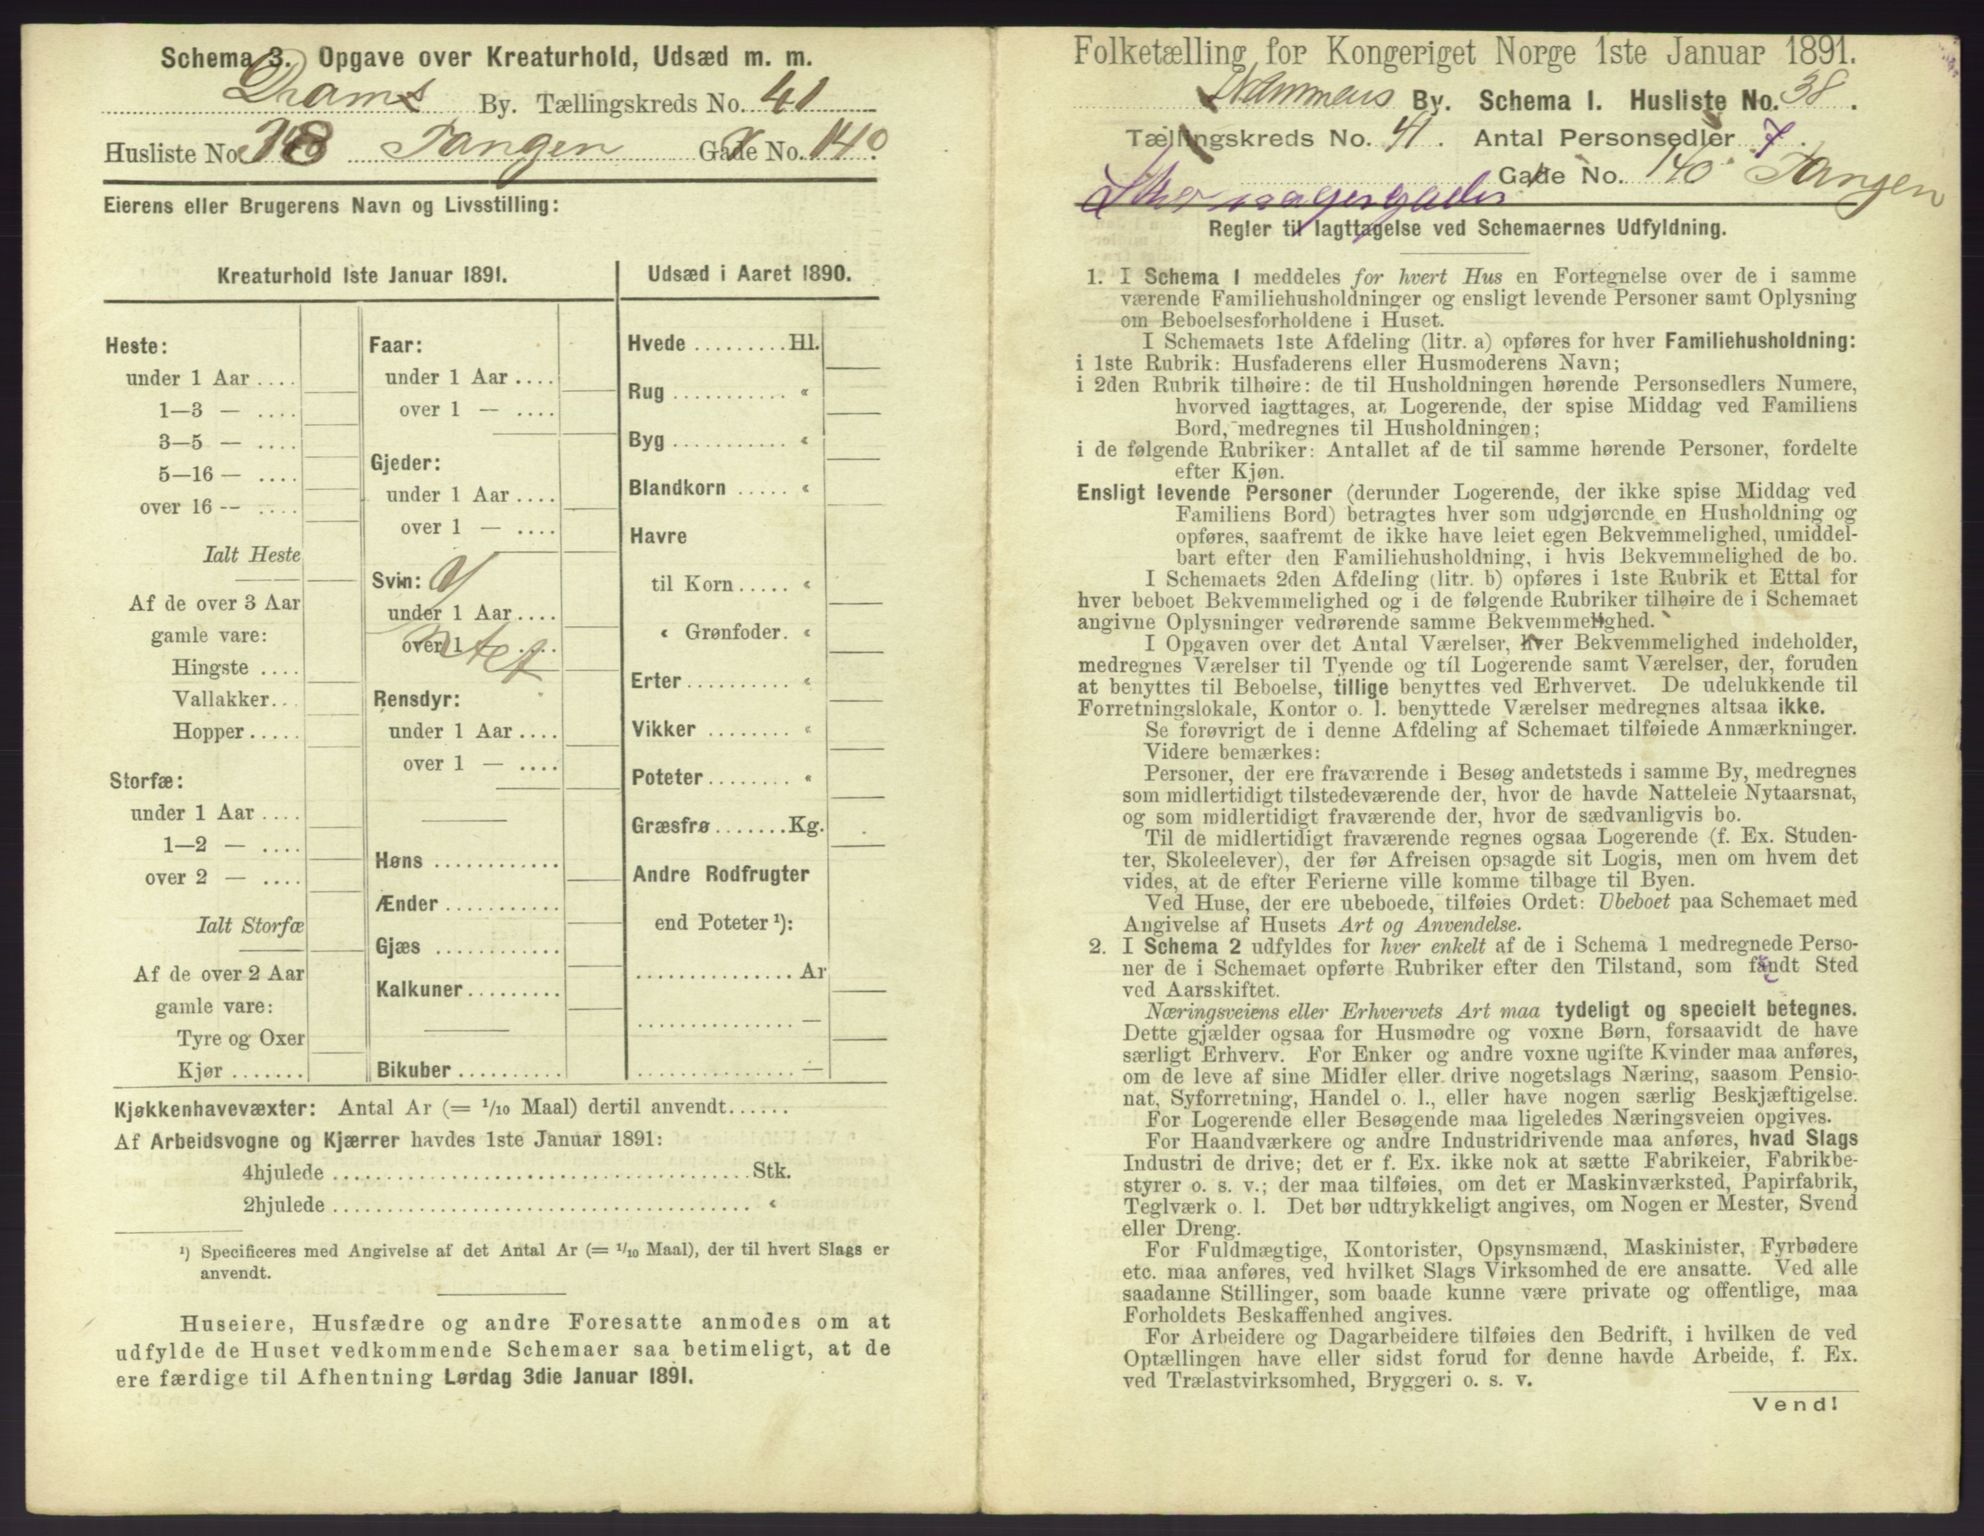 Schema 3. Opgave over Kreaturhold, Udsæd m. m.
Drams By. Tællingskreds No. 41
Husliste No. 38 Tangen Gade No. 140
Eierens eller Brugerens Navn og Livsstilling:
Kreaturhold 1ste Januar 1891.
Heste:
under 1 Aar ....
1—3 — ....
3—5 — ....
5—16 — ....
over 16 -- ....
Ialt Heste
Af de over 3 Aar
gamle vare:
Hingste ....
Vallakker...
Hopper.....
Storfæ:
under 1 Aar ....
1—2 — ....
over 2 — ....
Ialt Storfæ
Af de over 2 Aar
gamle vare:
Tyre og Oxer
Kjør .......
Faar:
under 1 Aar ....
over 1 — ....
Gjeder:
under 1 Aar ....
over 1 — ....
Svin:
under 1 Aar ....
over 1 ....
Rensdyr:
under 1 Aar ....
over 1 — ....
Høns ............
Ænder ...........
Gjæs ............
Kalkuner.........
Bikuber ..........
Udsæd i Aaret 1890.
Hvede .........Hl.
Rug ........... «
Byg ........... «
Blandkorn ..... «
Havre
til Korn..... «
« Grønfoder. «
Erter.......... «
Vikker ........ «
Poteter........ «
Græsfrø.......Kg.
Andre Rodfrugter
end Poteter ¹):
............... Ar
............... —
............... —
Kjøkkenhavevæxter: Antal Ar (= 1/10 Maal) dertil anvendt......
Af Arbeidsvogne og Kjærrer havdes 1ste Januar 1891:
4hjulede ........................................Stk.
2hjulede ........................................ «
¹) Specificeres med Angivelse af det Antal Ar (= 1/10 Maal), der til hvert Slags er
anvendt.
Huseiere, Husfædre og andre Foresatte anmodes om at
udfylde de Huset vedkommende Schemaer saa betimeligt, at de
ere færdige til Afhentning Lørdag 3die Januar 1891.
Folketælling for Kongeriget Norge 1ste Januar 1891.
Drammens By. Schema 1. Husliste No. 38.
Tællingskreds No. 41. Antal Personsedler 7.
Gade No. 140 Tangen
Regler til Iagttagelse ved Schemaernes Udfyldning.
1. I Schema 1 meddeles for hvert Hus en Fortegnelse over de i samme
værende Familiehusholdninger og ensligt levende Personer samt Oplysning
om Beboelsesforholdene i Huset.
I Schemaets 1ste Afdeling (litr. a) opføres for hver Familiehusholdning:
i 1ste Rubrik: Husfaderens eller Husmoderens Navn;
i 2den Rubrik tilhøire: de til Husholdningen hørende Personsedlers Numere,
hvorved iagttages, at Logerende, der spise Middag ved Familiens
Bord, medregnes til Husholdningen;
i de følgende Rubriker: Antallet af de til samme hørende Personer, fordelte
efter Kjøn.
Ensligt levende Personer (derunder Logerende, der ikke spise Middag ved
Familiens Bord) betragtes hver som udgjørende en Husholdning og
opføres, saafremt de ikke have leiet egen Bekvemmelighed, umiddel-
bart efter den Familiehusholdning, i hvis Bekvemmelighed de bo.
I Schemaets 2den Afdeling (litr. b) opføres i 1ste Rubrik et Ettal for
hver beboet Bekvemmelighed og i de følgende Rubriker tilhøire de i Schemaet
angivne Oplysninger vedrørende samme Bekvemmelighed.
I Opgaven over det Antal Værelser, hver Bekvemmelighed indeholder,
medregnes Værelser til Tyende og til Logerende samt Værelser, der, foruden
at benyttes til Beboelse, tillige benyttes ved Erhvervet. De udelukkende til
Forretningslokale, Kontor o. l. benyttede Værelser medregnes altsaa ikke.
Se forøvrigt de i denne Afdeling af Schemaet tilføiede Anmærkninger.
Videre bemærkes:
Personer, der ere fraværende i Besøg andetsteds i samme By, medregnes
som midlertidigt tilstedeværende der, hvor de havde Natteleie Nytaarsnat,
og som midlertidigt fraværende der, hvor de sædvanligvis bo.
Til de midlertidigt fraværende regnes ogsaa Logerende (f. Ex. Studen-
ter, Skoleelever), der før Afreisen opsagde sit Logis, men om hvem det
vides, at de efter Ferierne ville komme tilbage til Byen.
Ved Huse, der ere ubeboede, tilføies Ordet: Ubeboet paa Schemaet med
Angivelse af Husets Art og Anvendelse.
2. I Schema 2 udfyldes for hver enkelt af de i Schema 1 medregnede Perso-
ner de i Schemaet opførte Rubriker efter den Tilstand, som fandt Sted
ved Aarsskiftet.
Næringsveiens eller Erhvervets Art maa tydeligt og specielt betegnes.
Dette gjælder ogsaa for Husmødre og voxne Børn, forsaavidt de have
særligt Erhverv. For Enker og andre voxne ugifte Kvinder maa anføres,
om de leve af sine Midler eller drive nogetslags Næring, saasom Pensio-
nat, Syforretning, Handel o. l., eller have nogen særlig Beskjæftigelse.
For Logerende eller Besøgende maa ligeledes Næringsveien opgives.
For Haandværkere og andre Industridrivende maa anføres, hvad Slags
Industri de drive; det er f. Ex. ikke nok at sætte Fabrikeier, Fabrikbe-
styrer o. s. v.; der maa tilføies, om det er Maskinværksted, Papirfabrik,
Teglværk o. l. Det bør udtrykkeligt angives, om Nogen er Mester, Svend
eller Dreng.
For Fuldmægtige, Kontorister, Opsynsmænd, Maskinister, Fyrbødere
etc. maa anføres, ved hvilket Slags Virksomhed de ere ansatte. Ved alle
saadanne Stillinger, som baade kunne være private og offentlige, maa
Forholdets Beskaffenhed angives.
For Arbeidere og Dagarbeidere tilføies den Bedrift, i hvilken de ved
Optællingen have eller sidst forud for denne havde Arbeide, f. Ex.
ved Trælastvirksomhed, Bryggeri o. s. v.
Vend!